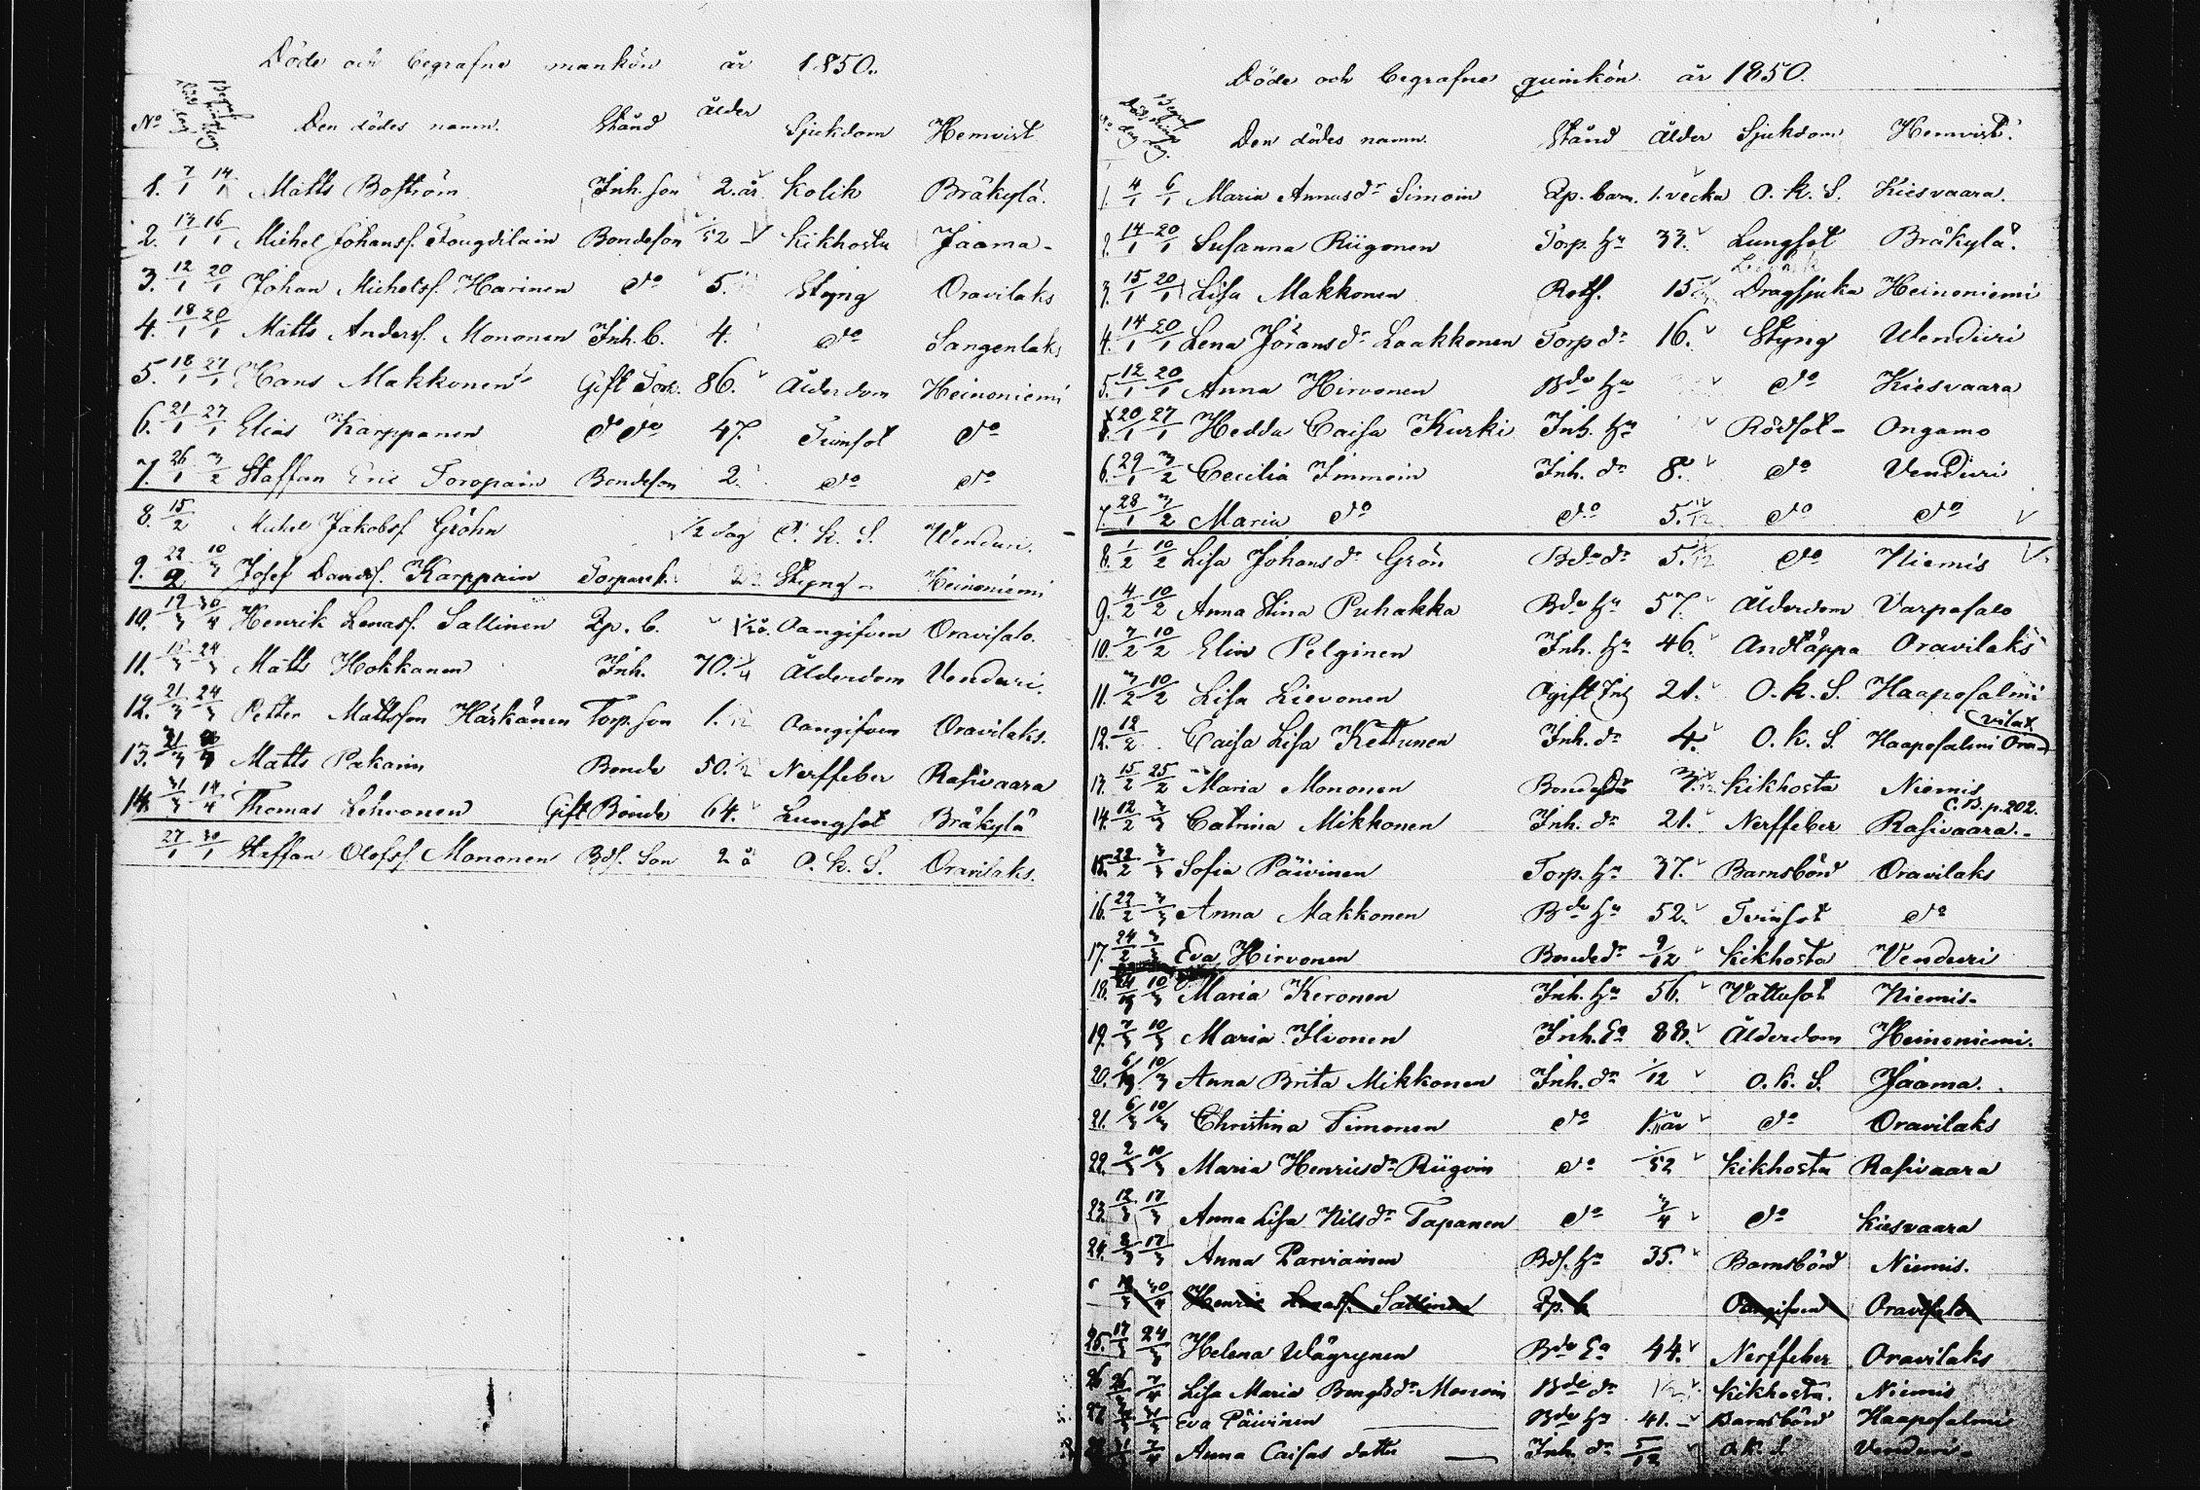 Döde och begrafne mankön år 1850.
No Den dödes namn. Stånd ålder Sjukdom Hemvist
1. 7/1 14/1 Matts Boström Inh. son 2. år Kolik Bräkylä.
2. 13/1 16/1 Michel Johansf. Bondeson 1/52 Kikhosta Jaama
3. 12/1 20/1 Johan Michelsf. Harinen do 5. Styng Oravilaks
4. 18/1 20/1 Matts Andersf. Mononen Inh. b. 4. do Sangenlaks
5. 18/1 27/1 Hans Makkonen Gift Torp. 86. Ålderdom Heinoniemi
6. 21/1 27/1 Elias Karppanen do do 47. Tvinsot do
7. 26/1 3/2 Staffan Eric Toropain Bondeson 2. do do
8. 15/2 Michel Jakobsf Gröhn 1/2 dag O. k. S. Wenduri.
9. 22/2 10/3 Josef Davidsf. Karppain Torparef. 2 Styng Heinoniemi
10. 19/3 30/4 Henrik Lenasf. Sallinen Zp. b. Oangifven Oravisalo.
11. 24/3 Matts Hokkanen Inh. 70. 1/4 Ålderdom Venduri.
12. 21/3 24/3 Petter Mattsson Härkänen Torp. son 1. Oangifven Oravilaks.
13. 21/3 Matts Pakarin Bonde 50. Nerffeber Rasivaara
14. 31/3 14/4 Thomas Lehvonen Gift Bonde 64. Lungsot Bräkylä
27/1 30/1 Staffan Olofsf Mononen Bdf. Son 2 å O. k. S. Oravilaks.
Döde och begrafne qvinkön år 1850.
Den dödes namn. Stånd ålder Sjukdom Hemvist.
1. 4/1 6/1 Maria Annasdr Simoin Zp. barn. 1. vecka O. k. S. Kiesvaara.
2. 14/1 20/1 Susanna Riigonen Torp. hu 33. Lungsot Bräkylä.
3. 15/1 20/1 Lisa Makkonen Rotf. 15 Dragsjuka Heinoniemi
4. 14/1 20/1 Lena Jöransdr Laakkonen Torp dr 16. Styng Wenduri
5. 12/1 20/1 Anna Hirvonen Bde hu do Kiesvaara
20/1 27/1 Hedda Caisa Kurki Inh. hu Rödsot Ongamo
6. 29/1 3/2 Cecilia Immoin Inh. dr 8. do Venduri
7. 28/1 3/2 Maria do do 5. do do
8. 1/2 10/2 Lisa Johansdr Grön Bde dr 5. do Niemis
9. 4/2 10/2 Anna Stina Puhakka Bde hu 57. Ålderdom Varpasalo
10. 7/2 10/2 Elin Pelginen Inh. hu 46. Andtäppa Oravilaks
11. 7/2 10/2 Lisa Lievonen Ogift Inh 21. O. k. S. Haapasalmi
12. 12/2 Caisa Lisa Kettunen Inh. dr 4. O. k. S. Haapasalmi Ora-
vilax
13. 15/2 25/2 Maria Mononen Bondedr Kikhosta Niemis
14. 12/2 3/3 Catrina Mikkonen Inh. dr 21. Nerffeber Rasivaara.
C.B. p. 202.
15. 22/2 3/3 Sofia Päivinen Torp. hu 37. Barnsbörd Oravilaks
16. 22/2 3/3 Anna Makkonen Bde hu 52. Tvinsot do
17. 24/2 3/3 Eva Hirvonen Bondedr 9/12 Kikhosta Venduri
18. 10/3 Maria Keronen Inh. hu 56. Vattusot Niemis
19. 7/3 10/3 Maria Ilvonen Inh. Ea 88. Ålderdom Heinoniemi.
20. 6/3 10/3 Anna Brita Mikkonen Inh. dr 1/12 O. k. S. Jaama.
21. 6/3 10/3 Christina Simonen do do Oravilaks
22. 2/3 10/3 Maria Henricsdr Riigoin do 1/52 Kikhosta Rasivaara
23. 12/3 17/3 Anna Lisa Nilsdr Tapanen do 3/4 do Kiesvaara
24. 8/3 17/3 Anna Parviainen Bdf. hu 35. Barnsbörd Niemis.
30/4 Henric Lenasf. Sallinen Zp. b Oangifven Oravisalo
25. 17/3 24/3 Helena Wägrynen Bde Ea 44. Nerffeber Oravilaks
26 26/3 7/4 Lisa Maria Bengtsdr Monoin Bde dr Kikhosta. Niemis
27. Eva Päivinen Bde hu 41. Barnsbörd Haapasalmi
31/3 7/4 Anna Caisas dotter Inh. dr 5/12 O. k. S Venduri